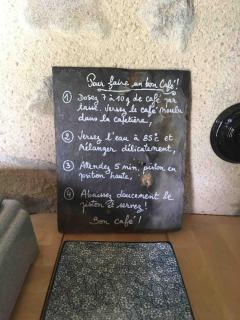 Pour faire un bon Café !
① Dosez 7 à 10g de café par
tasse. Versez le café moulu
dans la cafetière,
② Versez l'eau à 85°c et
Mélanger délicatement,
③ Attendez 5 min, piston en
position haute,
④ Abaissez doucement le
piston et servez !
Bon café !